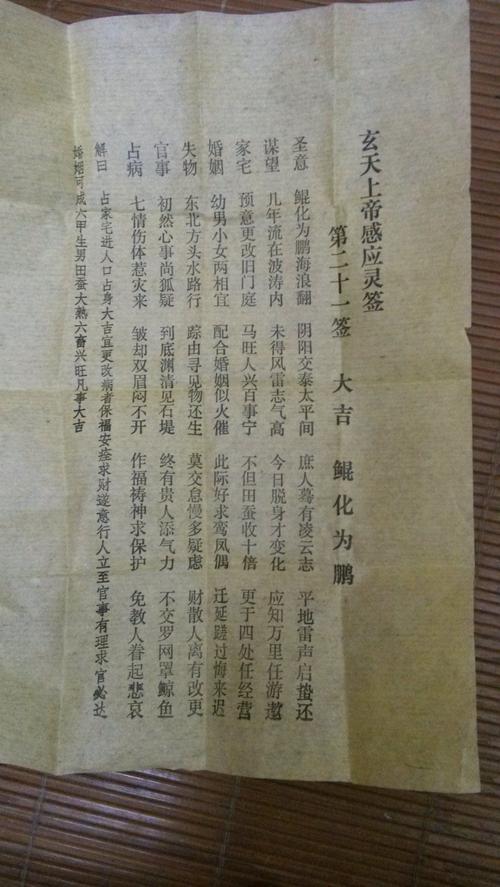 玄天上帝感应灵签
第二十一签 大吉 鲲化为鹏
圣意 鲲化为鹏海浪翻 阴阳交泰太平间 庶人蓦有凌云志 平地雷声启蛰还
谋望 几年流在波涛内 未得风雷志气高 今日脱身才变化 应知万里任游遨
家宅 预意更改旧门庭 马旺人兴百事宁 不但田蚕收十倍 更于四处任经营
婚姻 幼男小女两相宜 配合婚姻似火催 此际好求鸾凤偶 迁延蹉过悔来迟
失物 东北方头水路行 踪由寻见物还生 莫交怠慢多疑虑 财散人离有改更
官事 初然心事尚狐疑 到底渊清见石堤 终有贵人添气力 不交罗网罩鲸鱼
占病 七情伤体惹灾来 皱却双眉闷不开 作福祷神求保护 免教人眷起悲哀
解曰 占家宅进人口占身大吉宜更改病者保福安痊求财遂意行人立至官事有理求官必达
婚姻可成六甲生男田蚕大熟六畜兴旺凡事大吉